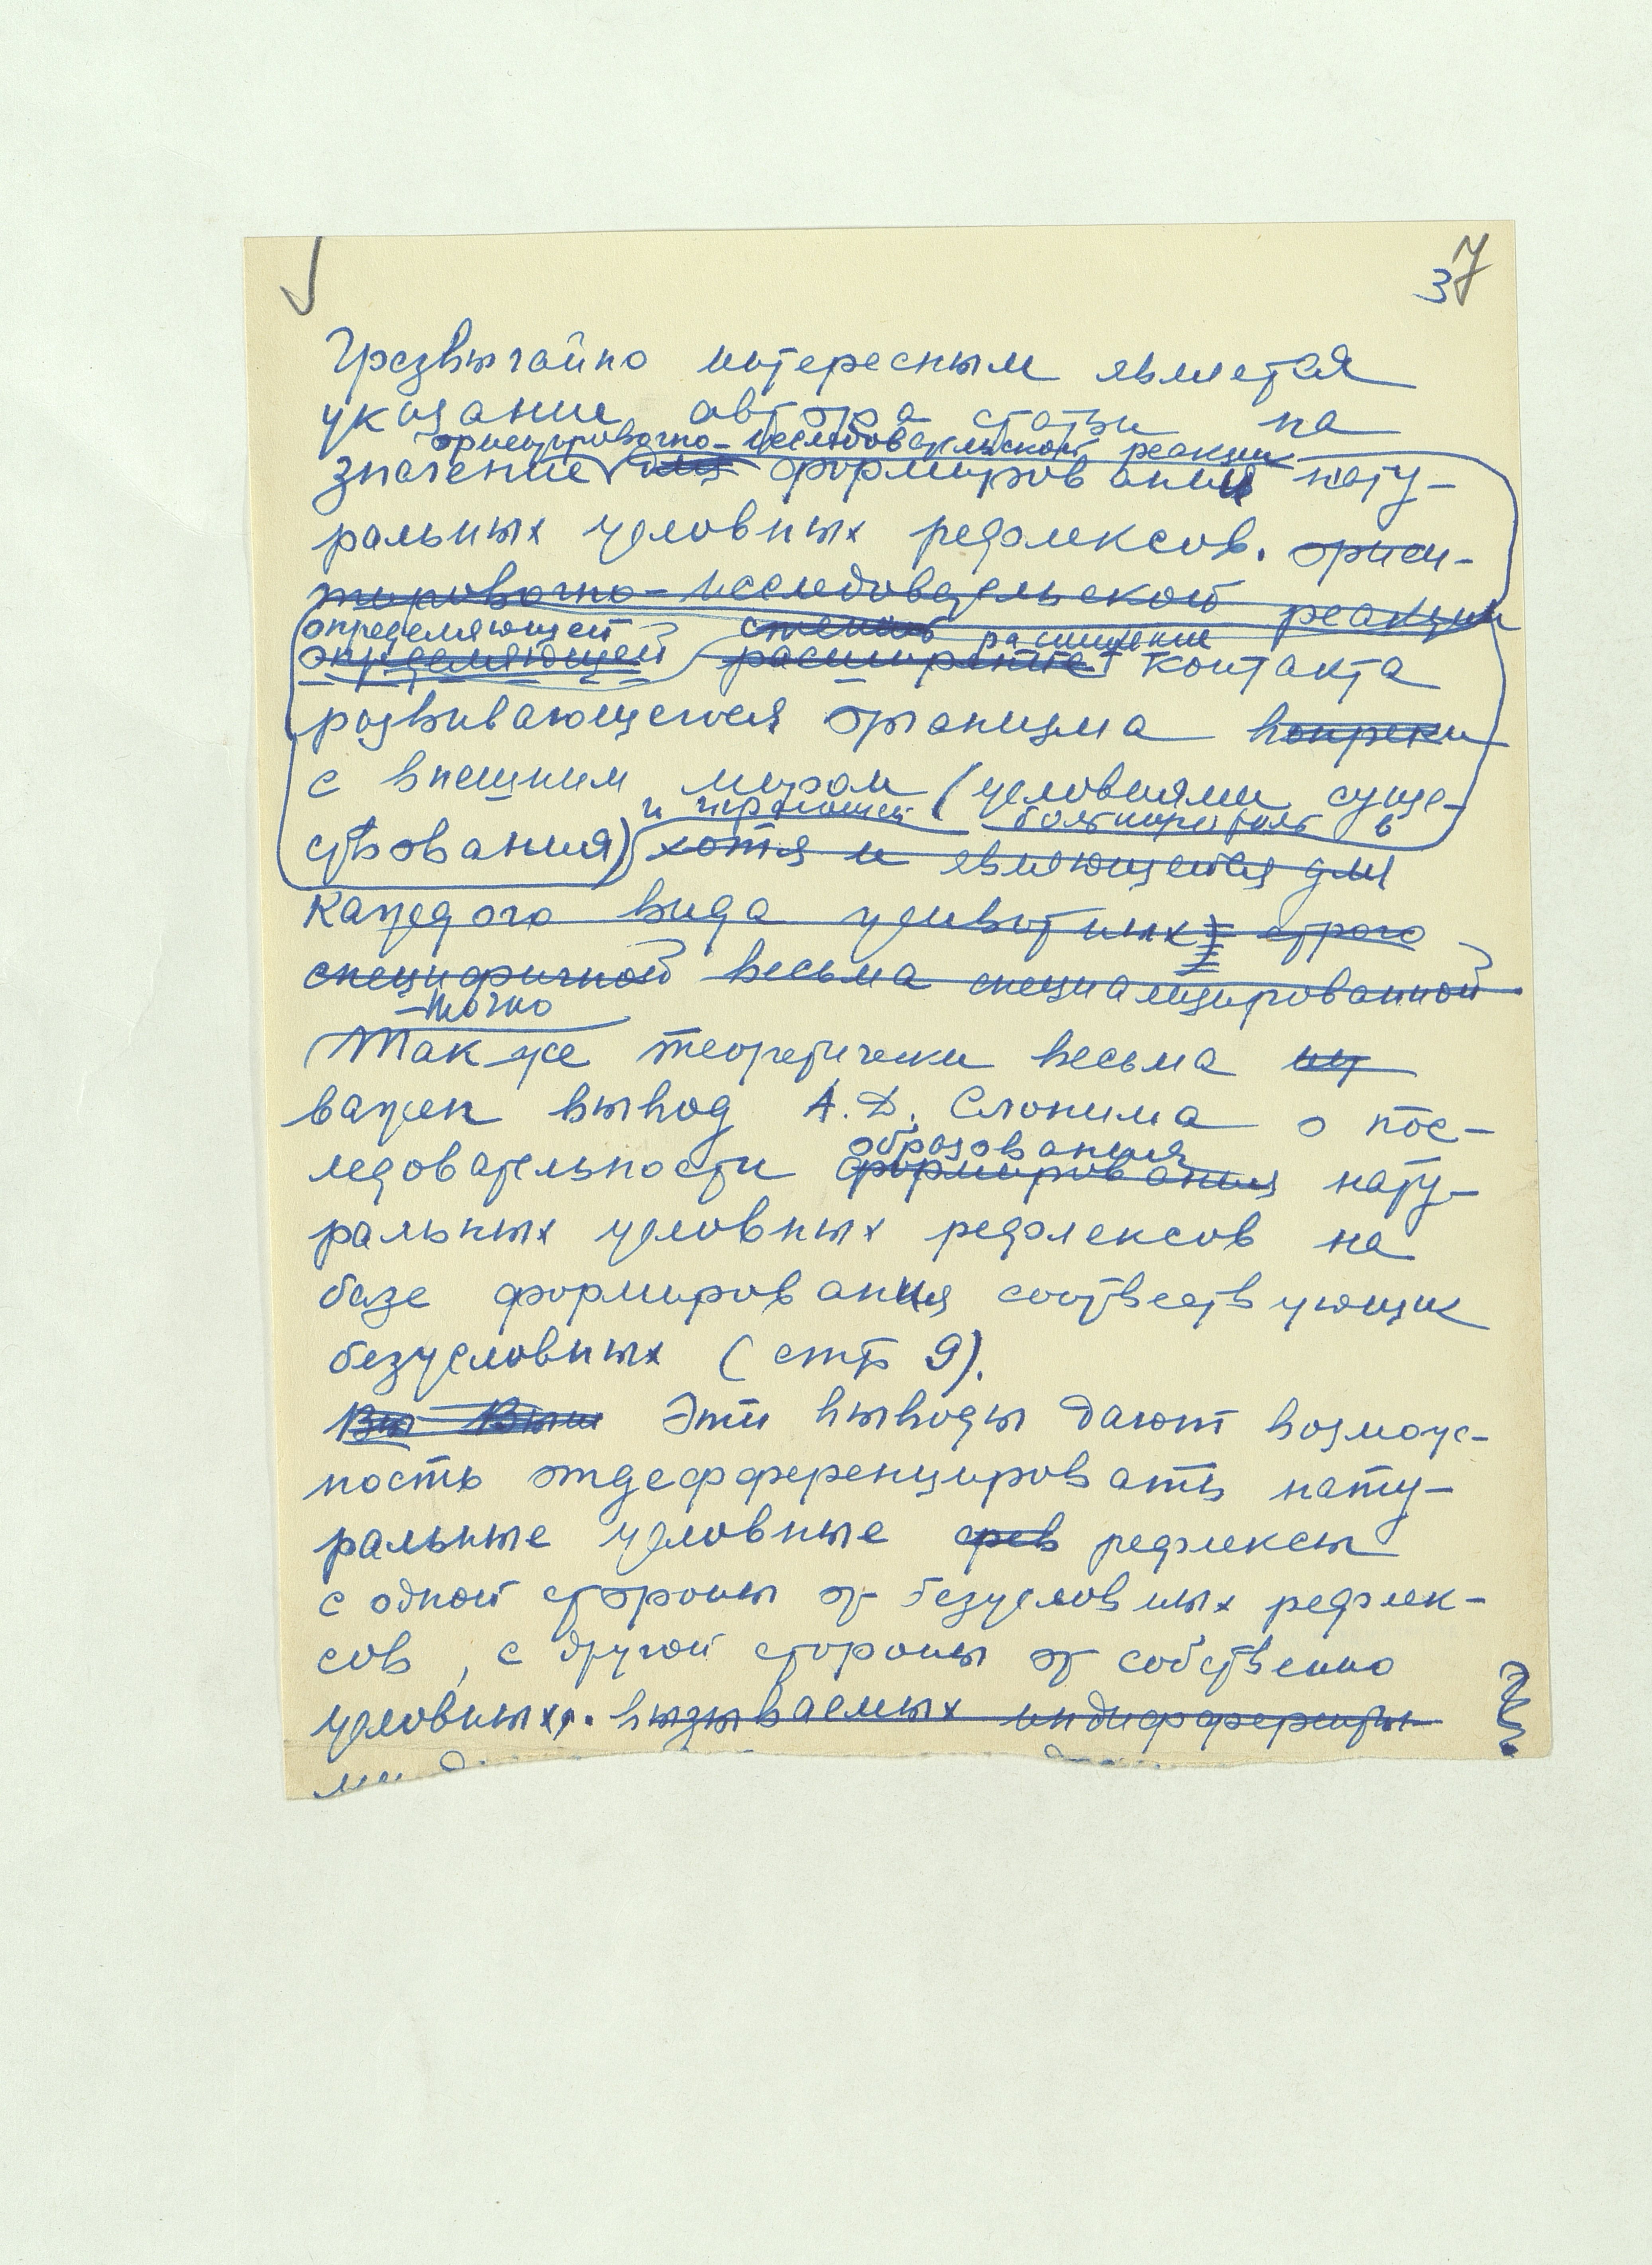 37
Чрезвычайно интересным является
указание автора статьи на
ориентировочно-исследовательской реакции
значение для формировании нату-
ральных условных рефлексов. ориен-
тировочно-исследовательской реакции
определяющей степень расширение
определяющей расширение контакта
развивающегося организма вопреки
с внешним миром (условиями суще-
и играющей большую роль в
ствования) хотя и являющейся для
каждого вида животных строго
специфичной весьма специализированной
точно
Так же теоретически весьма
важен вывод А.Д. Слонима о пос-
образования
ледовательности формирования нату-
ральных условных рефлексов на
базе формирования соотвествующих
безусловных (стр 9).
Вы Выш Эти выводы дают возмож-
ность отдефференцировать нату-
ральные условные рефлексы
с одной стороны от безусловных рефлек-
сов, с другой стороны от собственно
условных. вызываемых индифферентны-